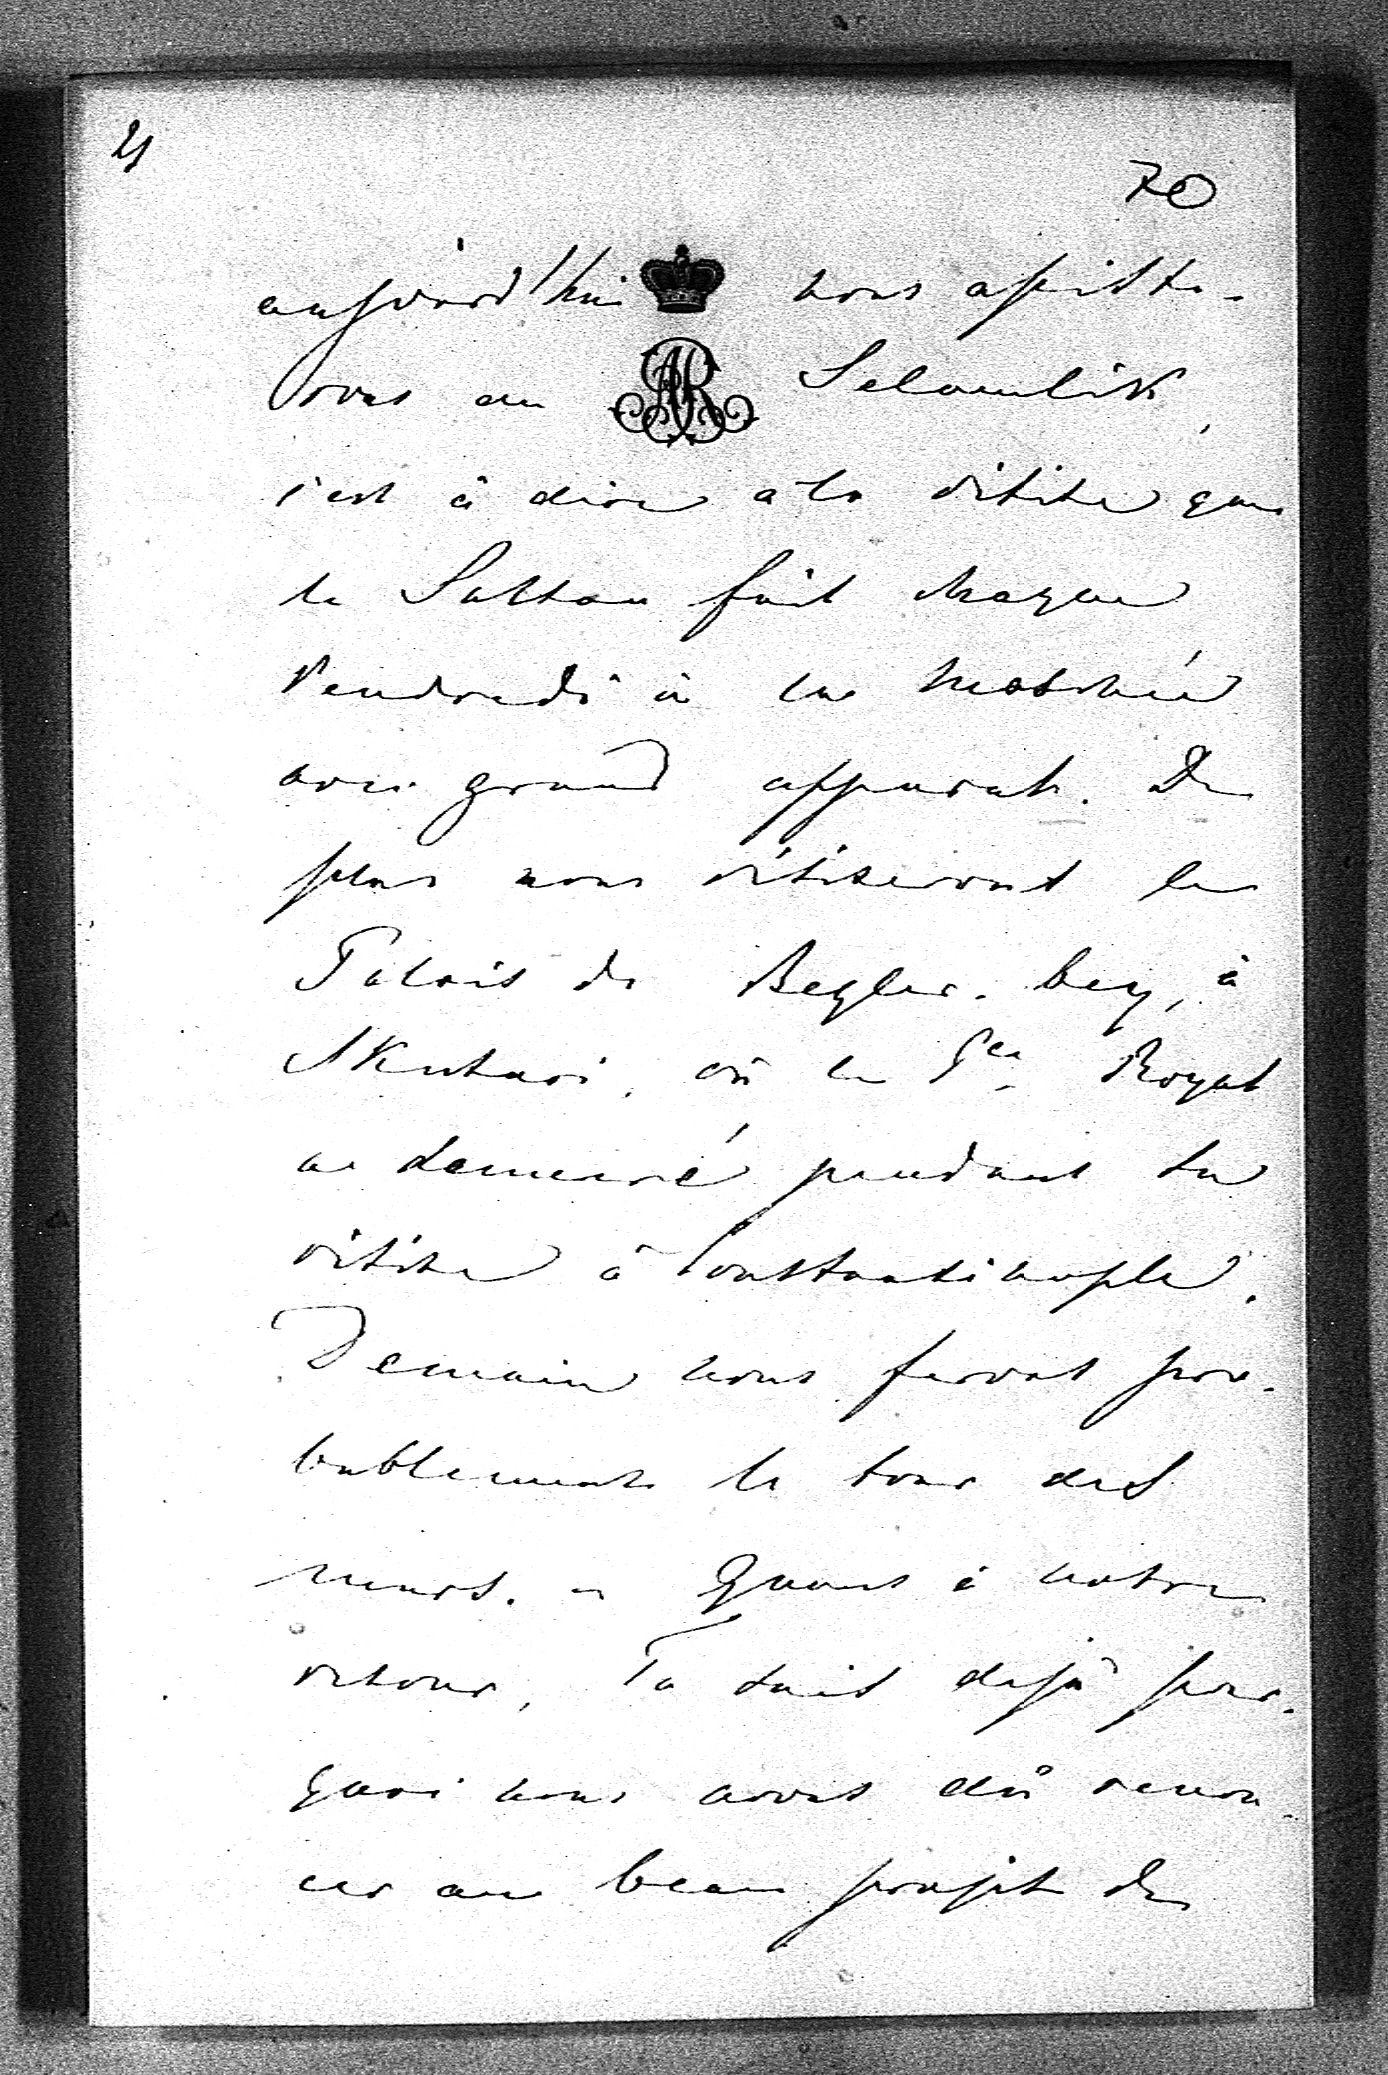 2)
70
aujourd'hui nous assiste-
rons au Selamlik,
c'est à dire a la visite que
le Sultan fait chaque
Vendredi à la Moschée
avec grand apparat. De
plus nous visiterons le
Palais de Begler-bey, à
Skutari, où le Pce Royal
a demeuré pendant sa
visite à Constantinople.
Demain nous ferons pro-
bablement le tour des
murs. – Quant à notre
retour, Tu sais dejà pour-
quoi nous avons dû renon-
cer au beau projet de